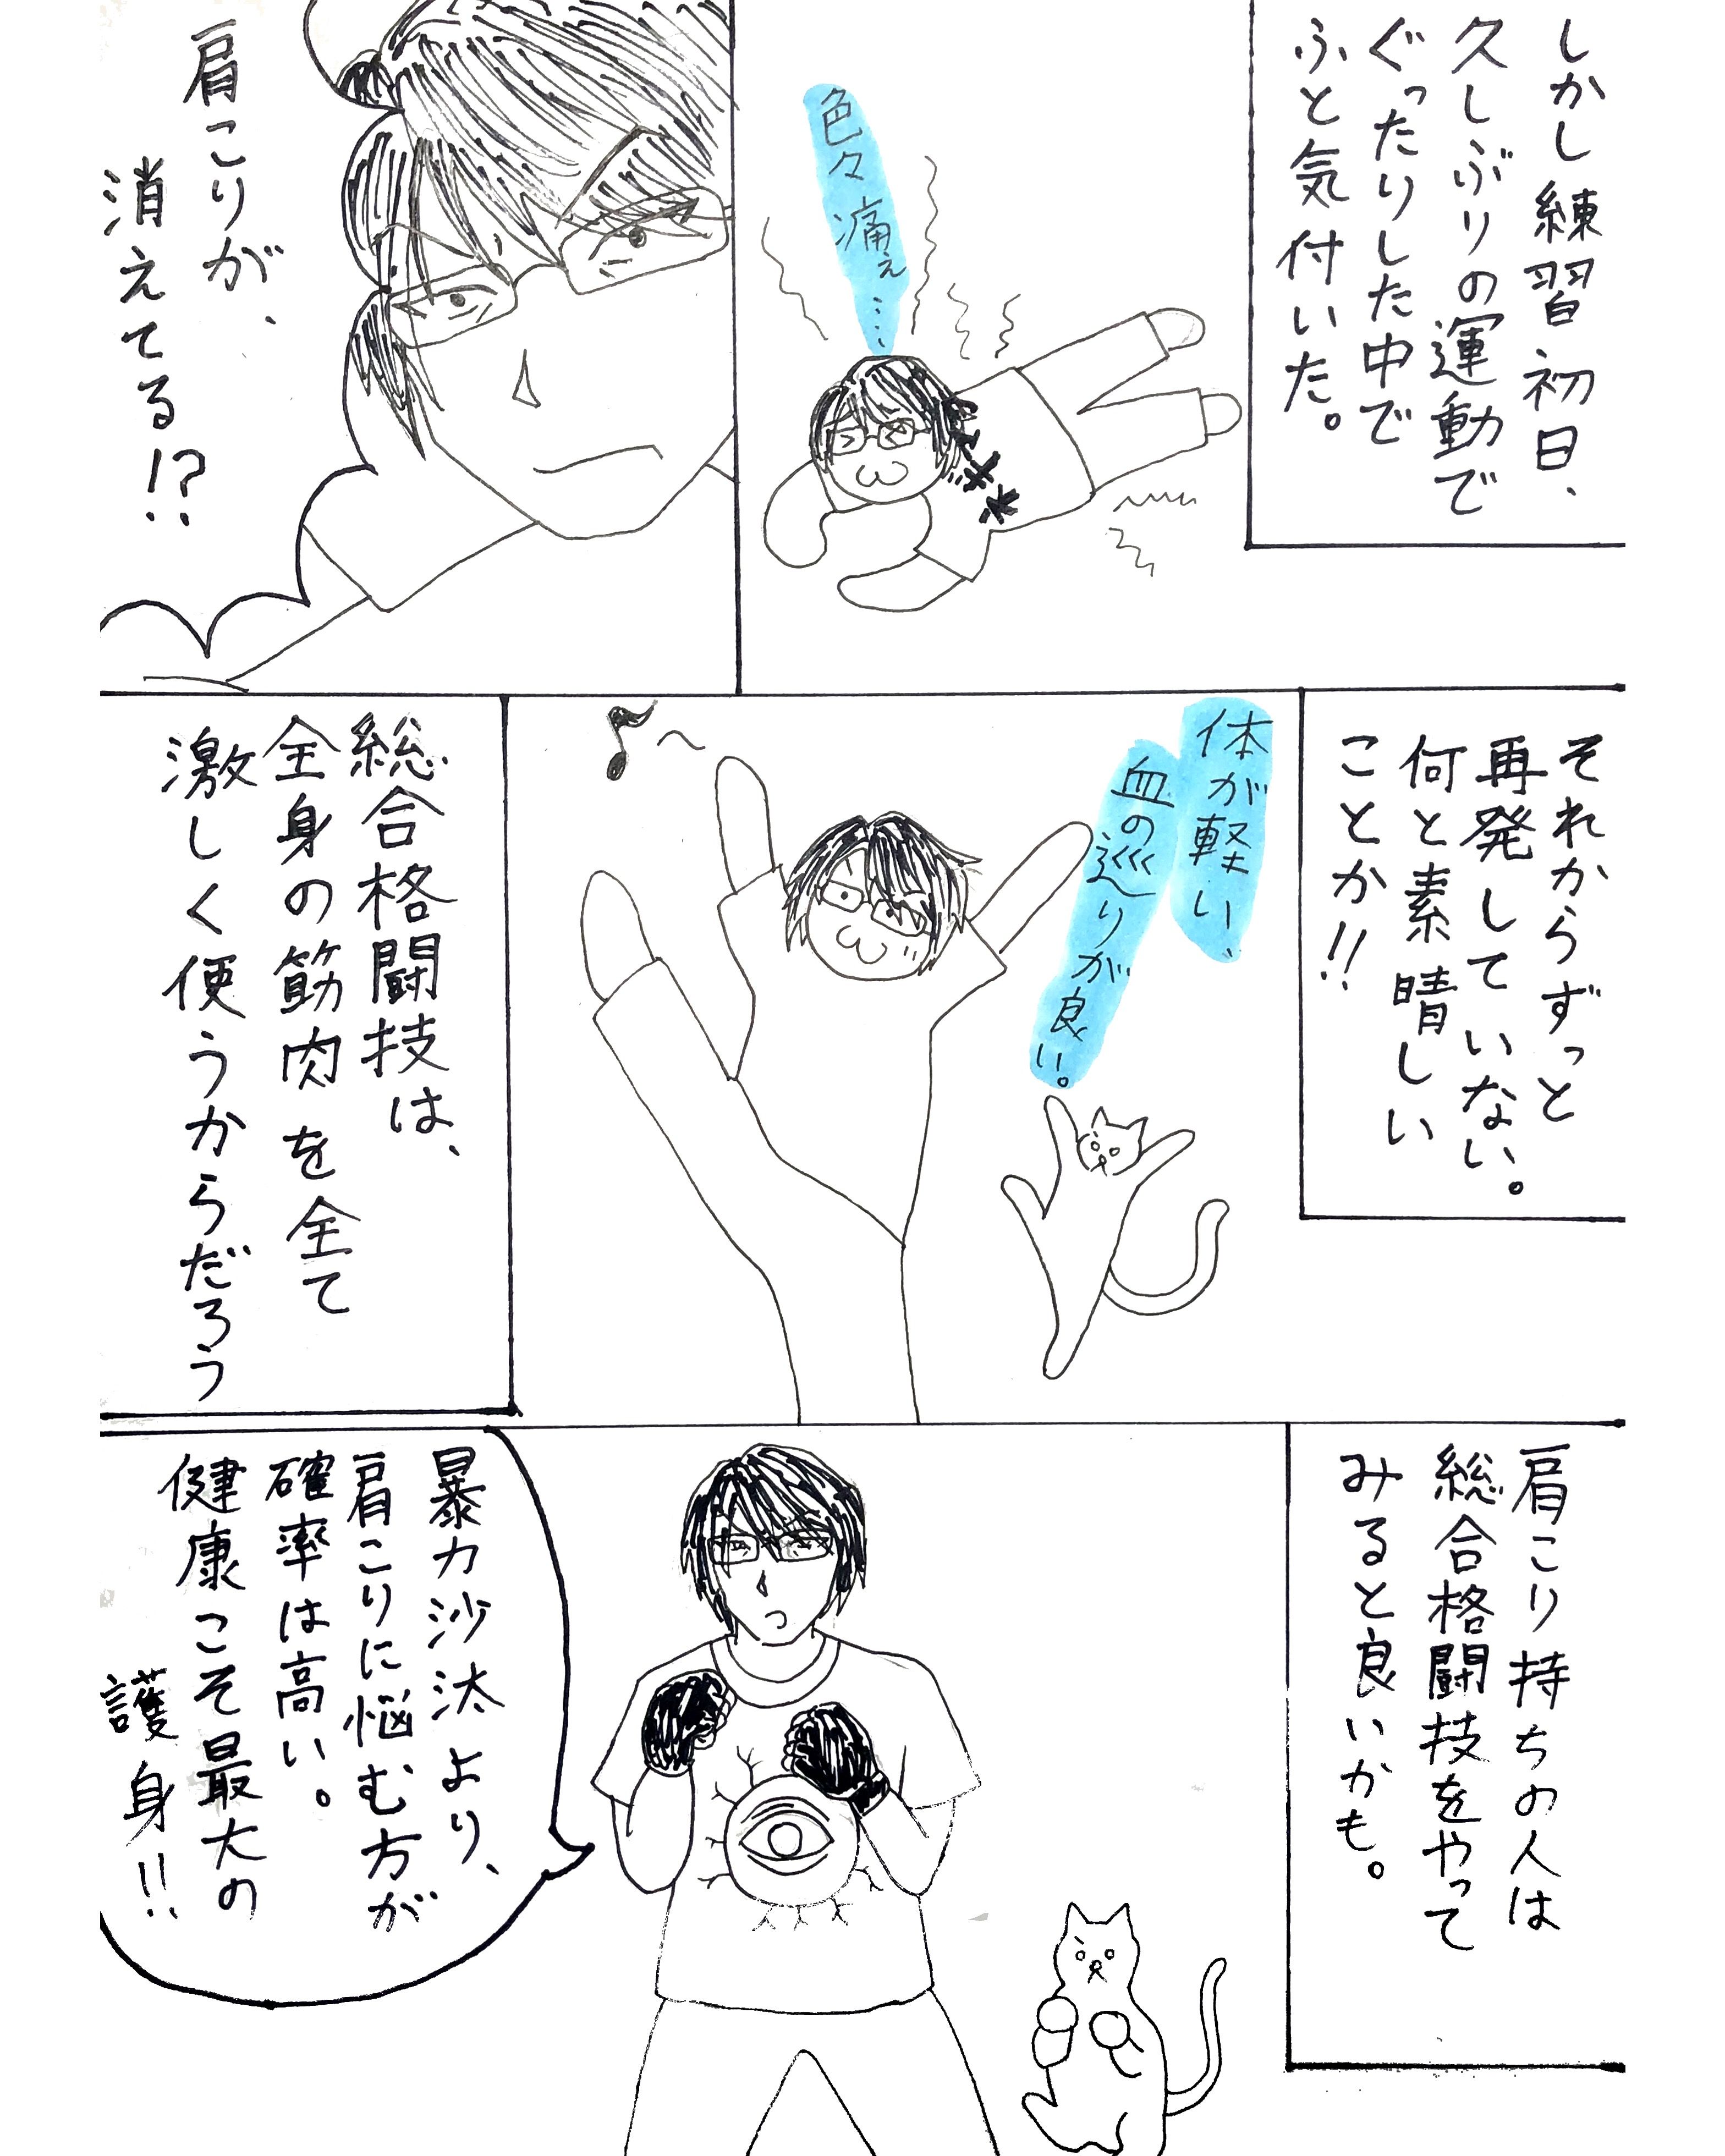 しかし練習初日、
久しぶりの運動で
ぐったりした中で
ふと気付いた。
色々痛ぇ……
肩こりが、
消えてる!?
それからずっと
再発していない。
何と素晴しい
ことか!!
体が軽い、
血の巡りが良い。
総合格闘技は、
全身の筋肉を全て
激しく使うからだろう
肩こり持ちの人は
総合格闘技をやって
みると良いかも。
暴力沙汰より、
肩こりに悩む方が
確率は高い。
健康こそ最大の
護身!!